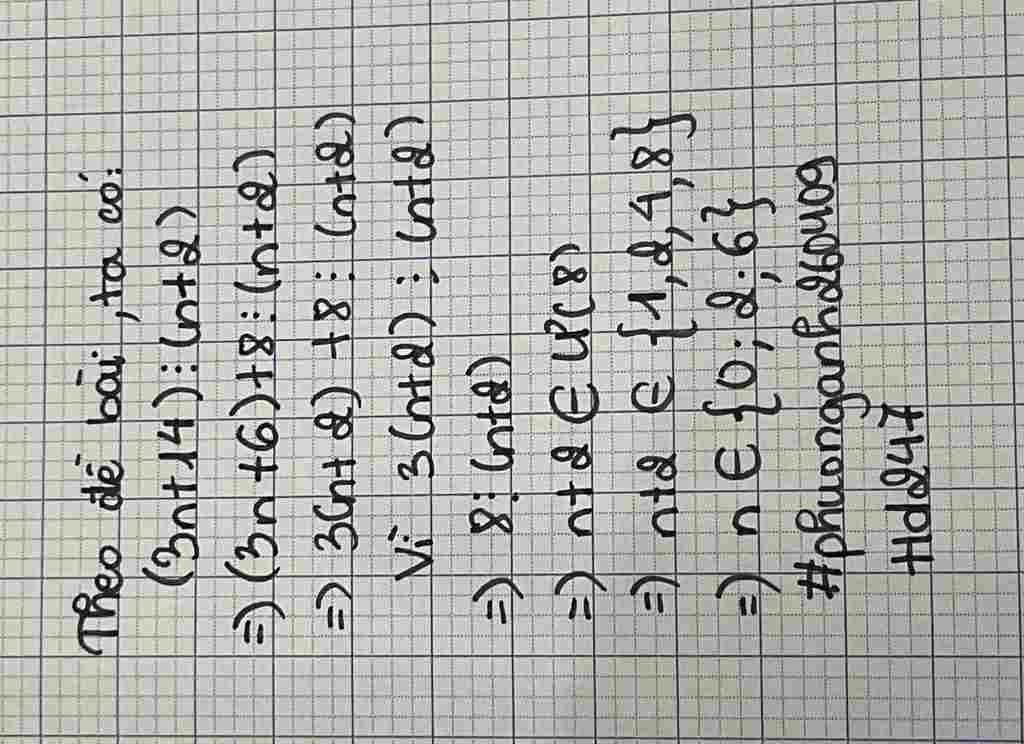 Theo đề bài, ta có:
(3n+14)⋮(n+2)
=) (3n+6)+8⋮(n+2)
=) 3(n+2)+8⋮(n+2)
Vì 3(n+2)⋮(n+2)
=) 8⋮(n+2)
=) n+2 ∈ Ư(8)
=) n+2 ∈ {1,2,4,8}
=) n ∈ {0;2;6}
#phuonganh260409
Hd247